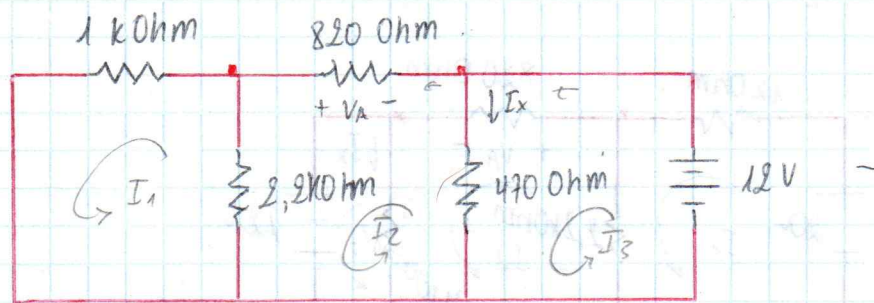 1 kOhm
820 Ohm
+ VA -
Ix
I1
2,2kOhm
I2
470 Ohm
I3
12 V